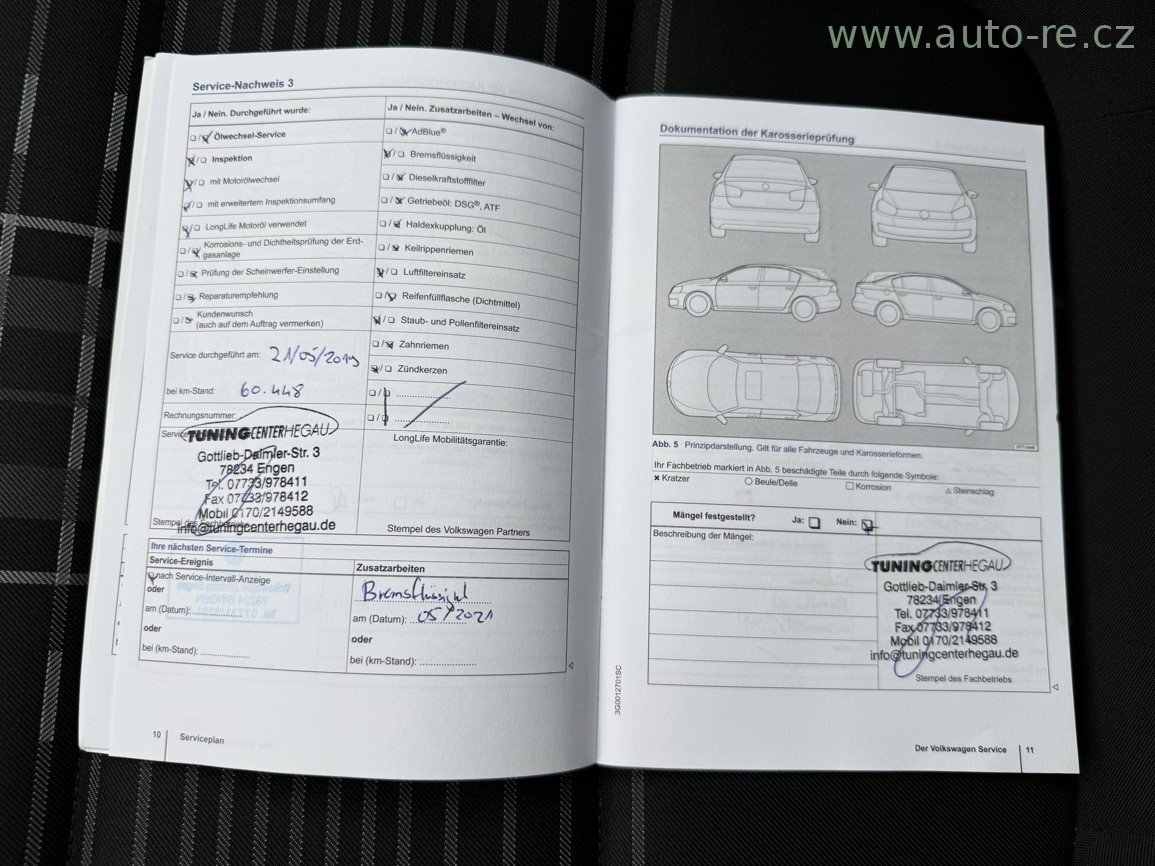 www.auto-re.cz
Service-Nachweis 3
Ja / Nein. Durchgeführt wurde:
Ölwechsel-Service
Inspektion
mit Motorölwechsel
mit erweitertem Inspektionsumfang
LongLife Motoröl verwendet
Korrosions- und Dichtheitsprüfung der Erd-
gasanlage
Prüfung der Scheinwerfer-Einstellung
Reparaturempfehlung
Kundenwunsch
(auch auf dem Auftrag vermerken)
Service durchgeführt am: 21/05/2019
bei km-Stand: 60.448
Rechnungsnummer:
TUNINGCENTERHEGAU
Gottlieb-Daimler-Str. 3
78234 Engen
Tel. 07733/978411
Fax 07733/978412
Mobil 0170/2149588
Stempel des Fachbetriebs
info@tuningcenterhegau.de
Ja / Nein. Zusatzarbeiten – Wechsel von:
AdBlue®
Bremsflüssigkeit
Dieselkraftstofffilter
Getriebeöl: DSG®, ATF
Haldexkupplung: Öl
Keilrippenriemen
Luftfiltereinsatz
Reifenfüllflasche (Dichtmittel)
Staub- und Pollenfiltereinsatz
Zahnriemen
Zündkerzen
LongLife Mobilitätsgarantie:
Stempel des Volkswagen Partners
Ihre nächsten Service-Termine
Service-Ereignis
nach Service-Intervall-Anzeige
oder
am (Datum):
oder
bei (km-Stand):
Zusatzarbeiten
am (Datum): 05/2021
oder
bei (km-Stand):
10 Serviceplan
Dokumentation der Karosserieprüfung
Abb. 5 Prinzipdarstellung. Gilt für alle Fahrzeuge und Karosserieformen.
Ihr Fachbetrieb markiert in Abb. 5 beschädigte Teile durch folgende Symbole:
Kratzer Beule/Delle Korrosion Steinschlag
Mängel festgestellt? Ja: Nein:
Beschreibung der Mängel:
TUNINGCENTERHEGAU
Gottlieb-Daimler-Str. 3
78234 Engen
Tel. 07733/978411
Fax 07733/978412
Mobil 0170/2149588
info@tuningcenterhegau.de
Stempel des Fachbetriebs
3G0012701SC
Der Volkswagen Service 11